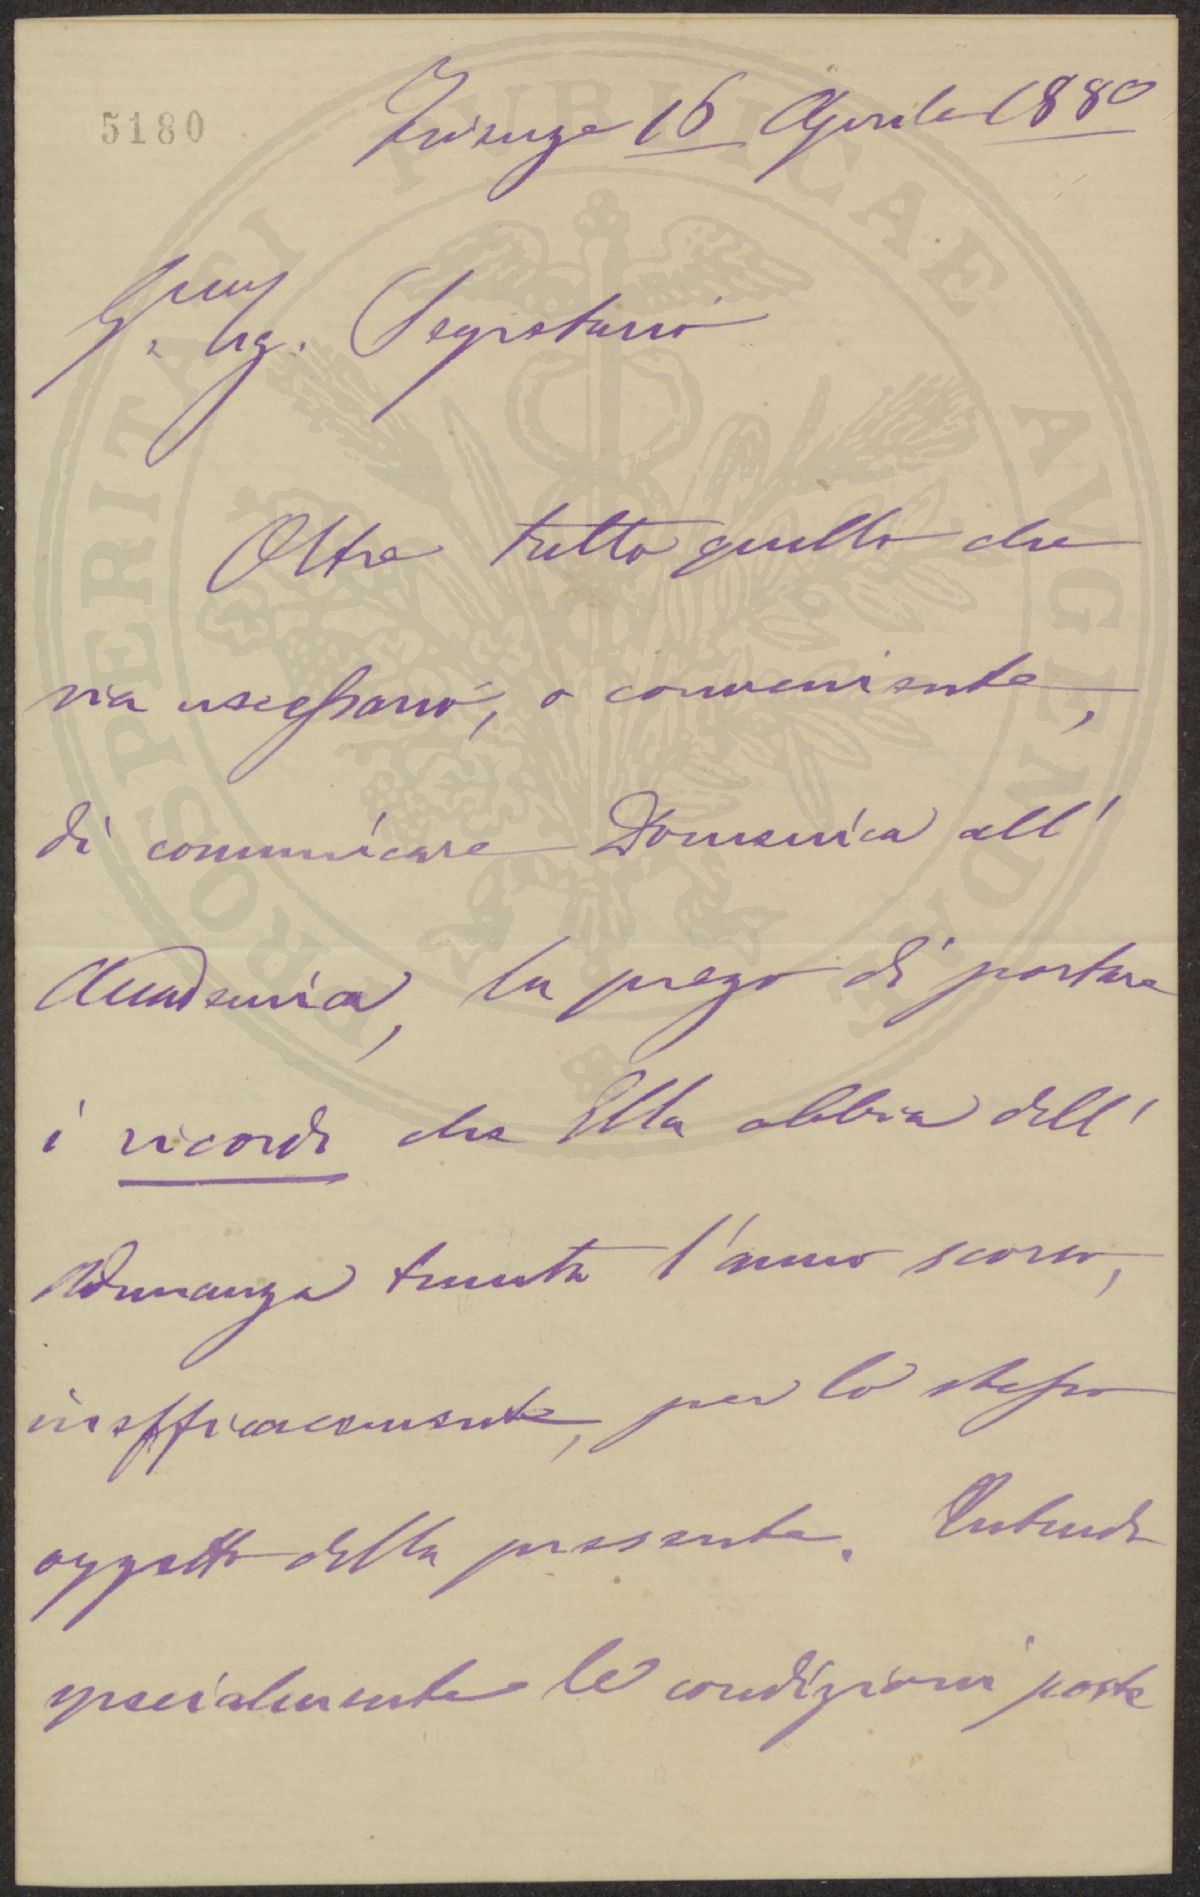 5180
Firenze 16 Aprile 1880
Sig. Segretario
Oltre tutto quello che
sia necessario, o conveniente,
di comunicare Domenica all'
Accademia, La prego di portare
i ricordi che Ella abbia dell'
Adunanza tenuta l'anno scorso,
inefficacemente, per lo stesso
oggetto della presente. Intendo
specialmente le condizioni poste
PROSPERITATI PUBLICAE AVGENDAE